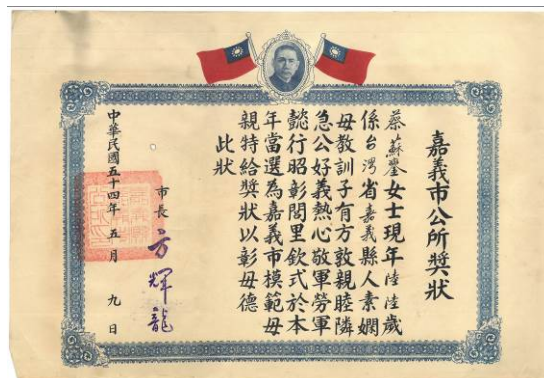 嘉義市公所獎狀
蔡蘇鑾女士現年陸陸歲
係台灣省嘉義縣人素嫻
母教訓子有方敦親睦隣
急公好義熱心敬軍勞軍
懿行昭彰閭里欽式於本
年當選為嘉義市模範母
親特給獎狀以彰母德
此狀
市長 方輝龍
中華民國五十四年五月九日